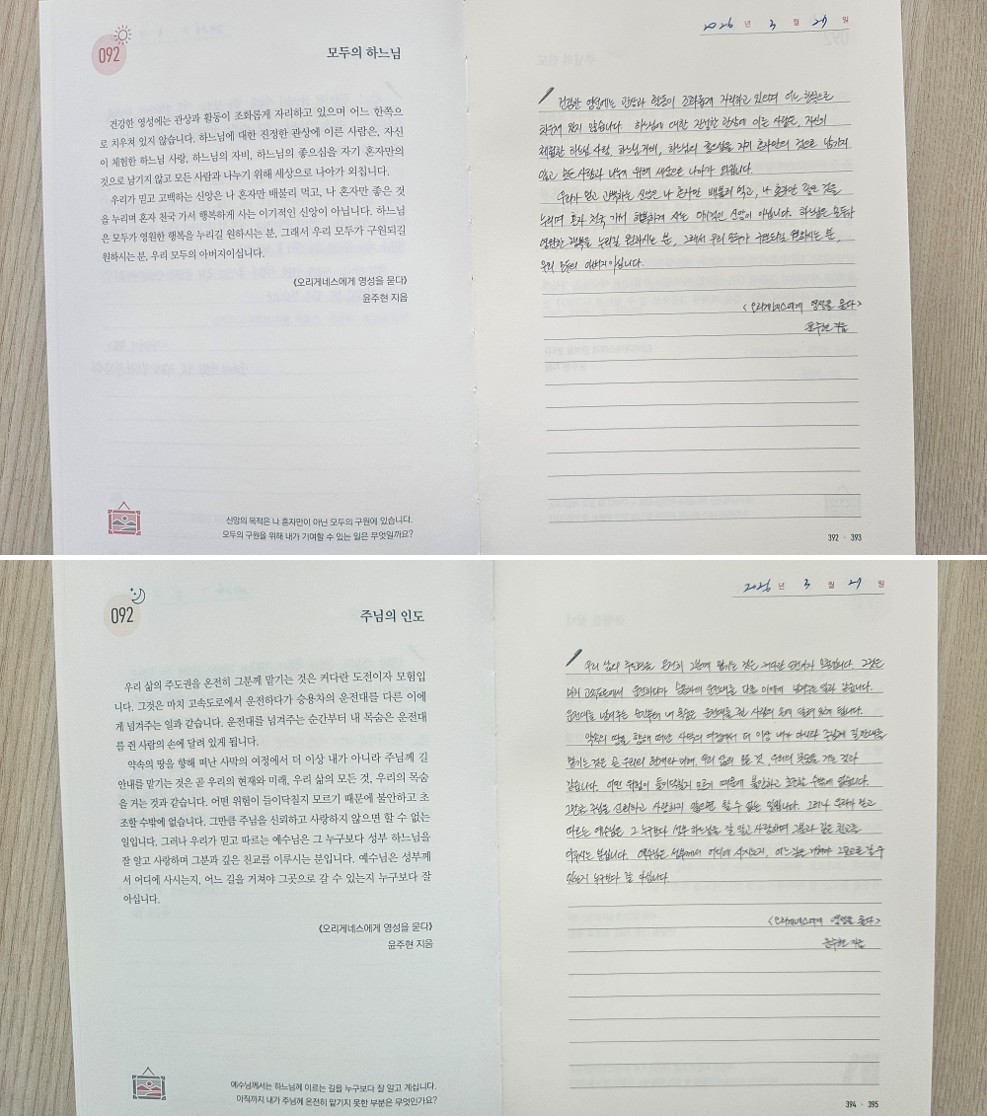 092
모두의 하느님
건강한 영성에는 관상과 활동이 조화롭게 자리하고 있으며 어느 한쪽으
로 치우쳐 있지 않습니다. 하느님에 대한 진정한 관상에 이른 사람은, 자신
이 체험한 하느님 사랑, 하느님의 자비, 하느님의 좋으심을 자기 혼자만의
것으로 남기지 않고 모든 사람과 나누기 위해 세상으로 나아가 외칩니다.
우리가 믿고 고백하는 신앙은 나 혼자만 배불리 먹고, 나 혼자만 좋은 것
을 누리며 혼자 천국 가서 행복하게 사는 이기적인 신앙이 아닙니다. 하느님
은 모두가 영원한 행복을 누리길 원하시는 분, 그래서 우리 모두가 구원되길
원하시는 분, 우리 모두의 아버지이십니다.
《오리게네스에게 영성을 묻다》
윤주현 지음
신앙의 목적은 나 혼자만이 아닌 모두의 구원에 있습니다.
모두의 구원을 위해 내가 기여할 수 있는 일은 무엇일까요?
2026 년 3 월 29 일
건강한 영성에는 관상과 활동이 조화롭게 자리하고 있으며 어느 한쪽으로
치우쳐 있지 않습니다. 하느님에 대한 진정한 관상에 이른 사람은, 자신이
체험한 하느님 사랑, 하느님의 자비, 하느님의 좋으심을 자기 혼자만의 것으로 남기지
않고 모든 사람과 나누기 위해 세상으로 나아가 외칩니다.
우리가 믿고 고백하는 신앙은 나 혼자만 배불리 먹고, 나 혼자만 좋은 것을
누리며 혼자 천국 가서 행복하게 사는 이기적인 신앙이 아닙니다. 하느님은 모두가
영원한 행복을 누리길 원하시는 분, 그래서 우리 모두가 구원되길 원하시는 분,
우리 모두의 아버지이십니다.
<오리게네스에게 영성을 묻다>
윤주현 지음
392 · 393
092
주님의 인도
우리 삶의 주도권을 온전히 그분께 맡기는 것은 커다란 도전이자 모험입니
다. 그것은 마치 고속도로에서 운전하다가 승용차의 운전대를 다른 이에
게 넘겨주는 일과 같습니다. 운전대를 넘겨주는 순간부터 내 목숨은 운전대
를 쥔 사람의 손에 달려 있게 됩니다.
약속의 땅을 향해 떠난 사막의 여정에서 더 이상 내가 아니라 주님께 길
안내를 맡기는 것은 곧 우리의 현재와 미래, 우리 삶의 모든 것, 우리의 목숨
을 거는 것과 같습니다. 어떤 위험이 들이닥칠지 모르기 때문에 불안하고 초
조할 수밖에 없습니다. 그만큼 주님을 신뢰하고 사랑하지 않으면 할 수 없는
일입니다. 그러나 우리가 믿고 따르는 예수님은 그 누구보다 성부 하느님을
잘 알고 사랑하며 그분과 깊은 친교를 이루시는 분입니다. 예수님은 성부께
서 어디에 사시는지, 어느 길을 거쳐야 그곳으로 갈 수 있는지 누구보다 잘
아십니다.
《오리게네스에게 영성을 묻다》
윤주현 지음
예수님께서는 하느님께 이르는 길을 누구보다 잘 알고 계십니다.
아직까지 내가 주님께 온전히 맡기지 못한 부분은 무엇인가요?
2026 년 3 월 29 일
우리 삶의 주도권을 온전히 그분께 맡기는 것은 커다란 도전이자 모험입니다. 그것은
마치 고속도로에서 운전하다가 승용차의 운전대를 다른 이에게 넘겨주는 일과 같습니다.
운전대를 넘겨주는 순간부터 내 목숨은 운전대를 쥔 사람의 손에 달려 있게 됩니다.
약속의 땅을 향해 떠난 사막의 여정에서 더 이상 내가 아니라 주님께 길 안내를
맡기는 것은 곧 우리의 현재와 미래, 우리 삶의 모든 것, 우리의 목숨을 거는 것과
같습니다. 어떤 위험이 들이닥칠지 모르기 때문에 불안하고 초조할 수밖에 없습니다.
그만큼 주님을 신뢰하고 사랑하지 않으면 할 수 없는 일입니다. 그러나 우리가 믿고
따르는 예수님은 그 누구보다 성부 하느님을 잘 알고 사랑하며 그분과 깊은 친교를
이루시는 분입니다. 예수님은 성부께서 어디에 사시는지, 어느 길을 거쳐야 그곳으로 갈 수
있는지 누구보다 잘 아십니다.
<오리게네스에게 영성을 묻다>
윤주현 지음
394 · 395